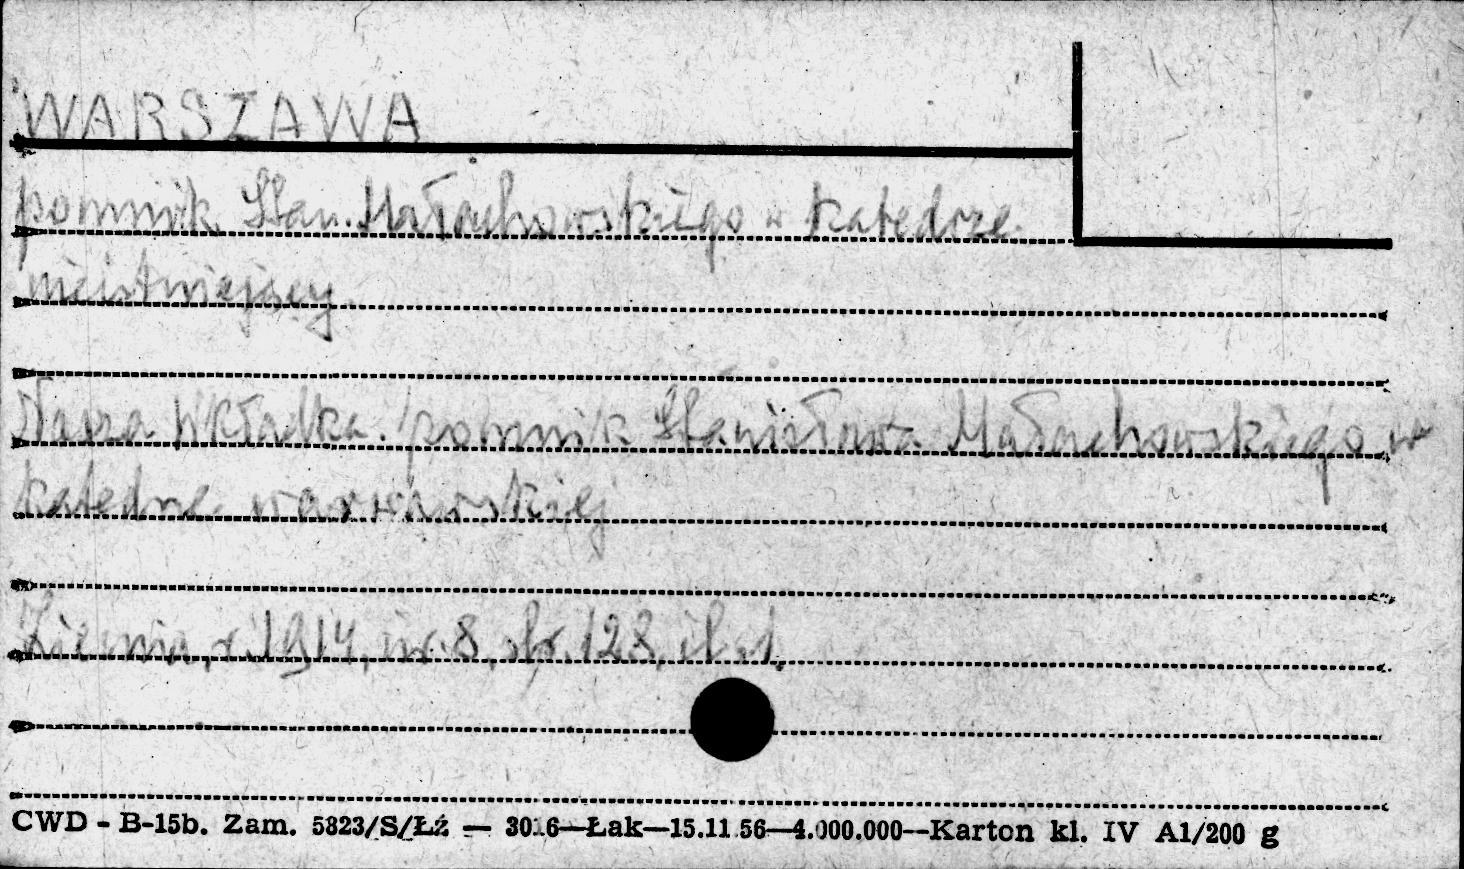 WARSZAWA
pomnik Stan. Małachowskiego w katedrze
nieistniejący.
Nasza wkładka. pomnik Stanisława Małachowskiego w
katedrze warszawskiej
Ziemia, r. 1914, nr. 8, str. 128, il. 1.
CWD - B-15b. Zam. 5823/S/Łź — 3016—Łak—15.11.56—4.000.000—Karton kl. IV A1/200 g